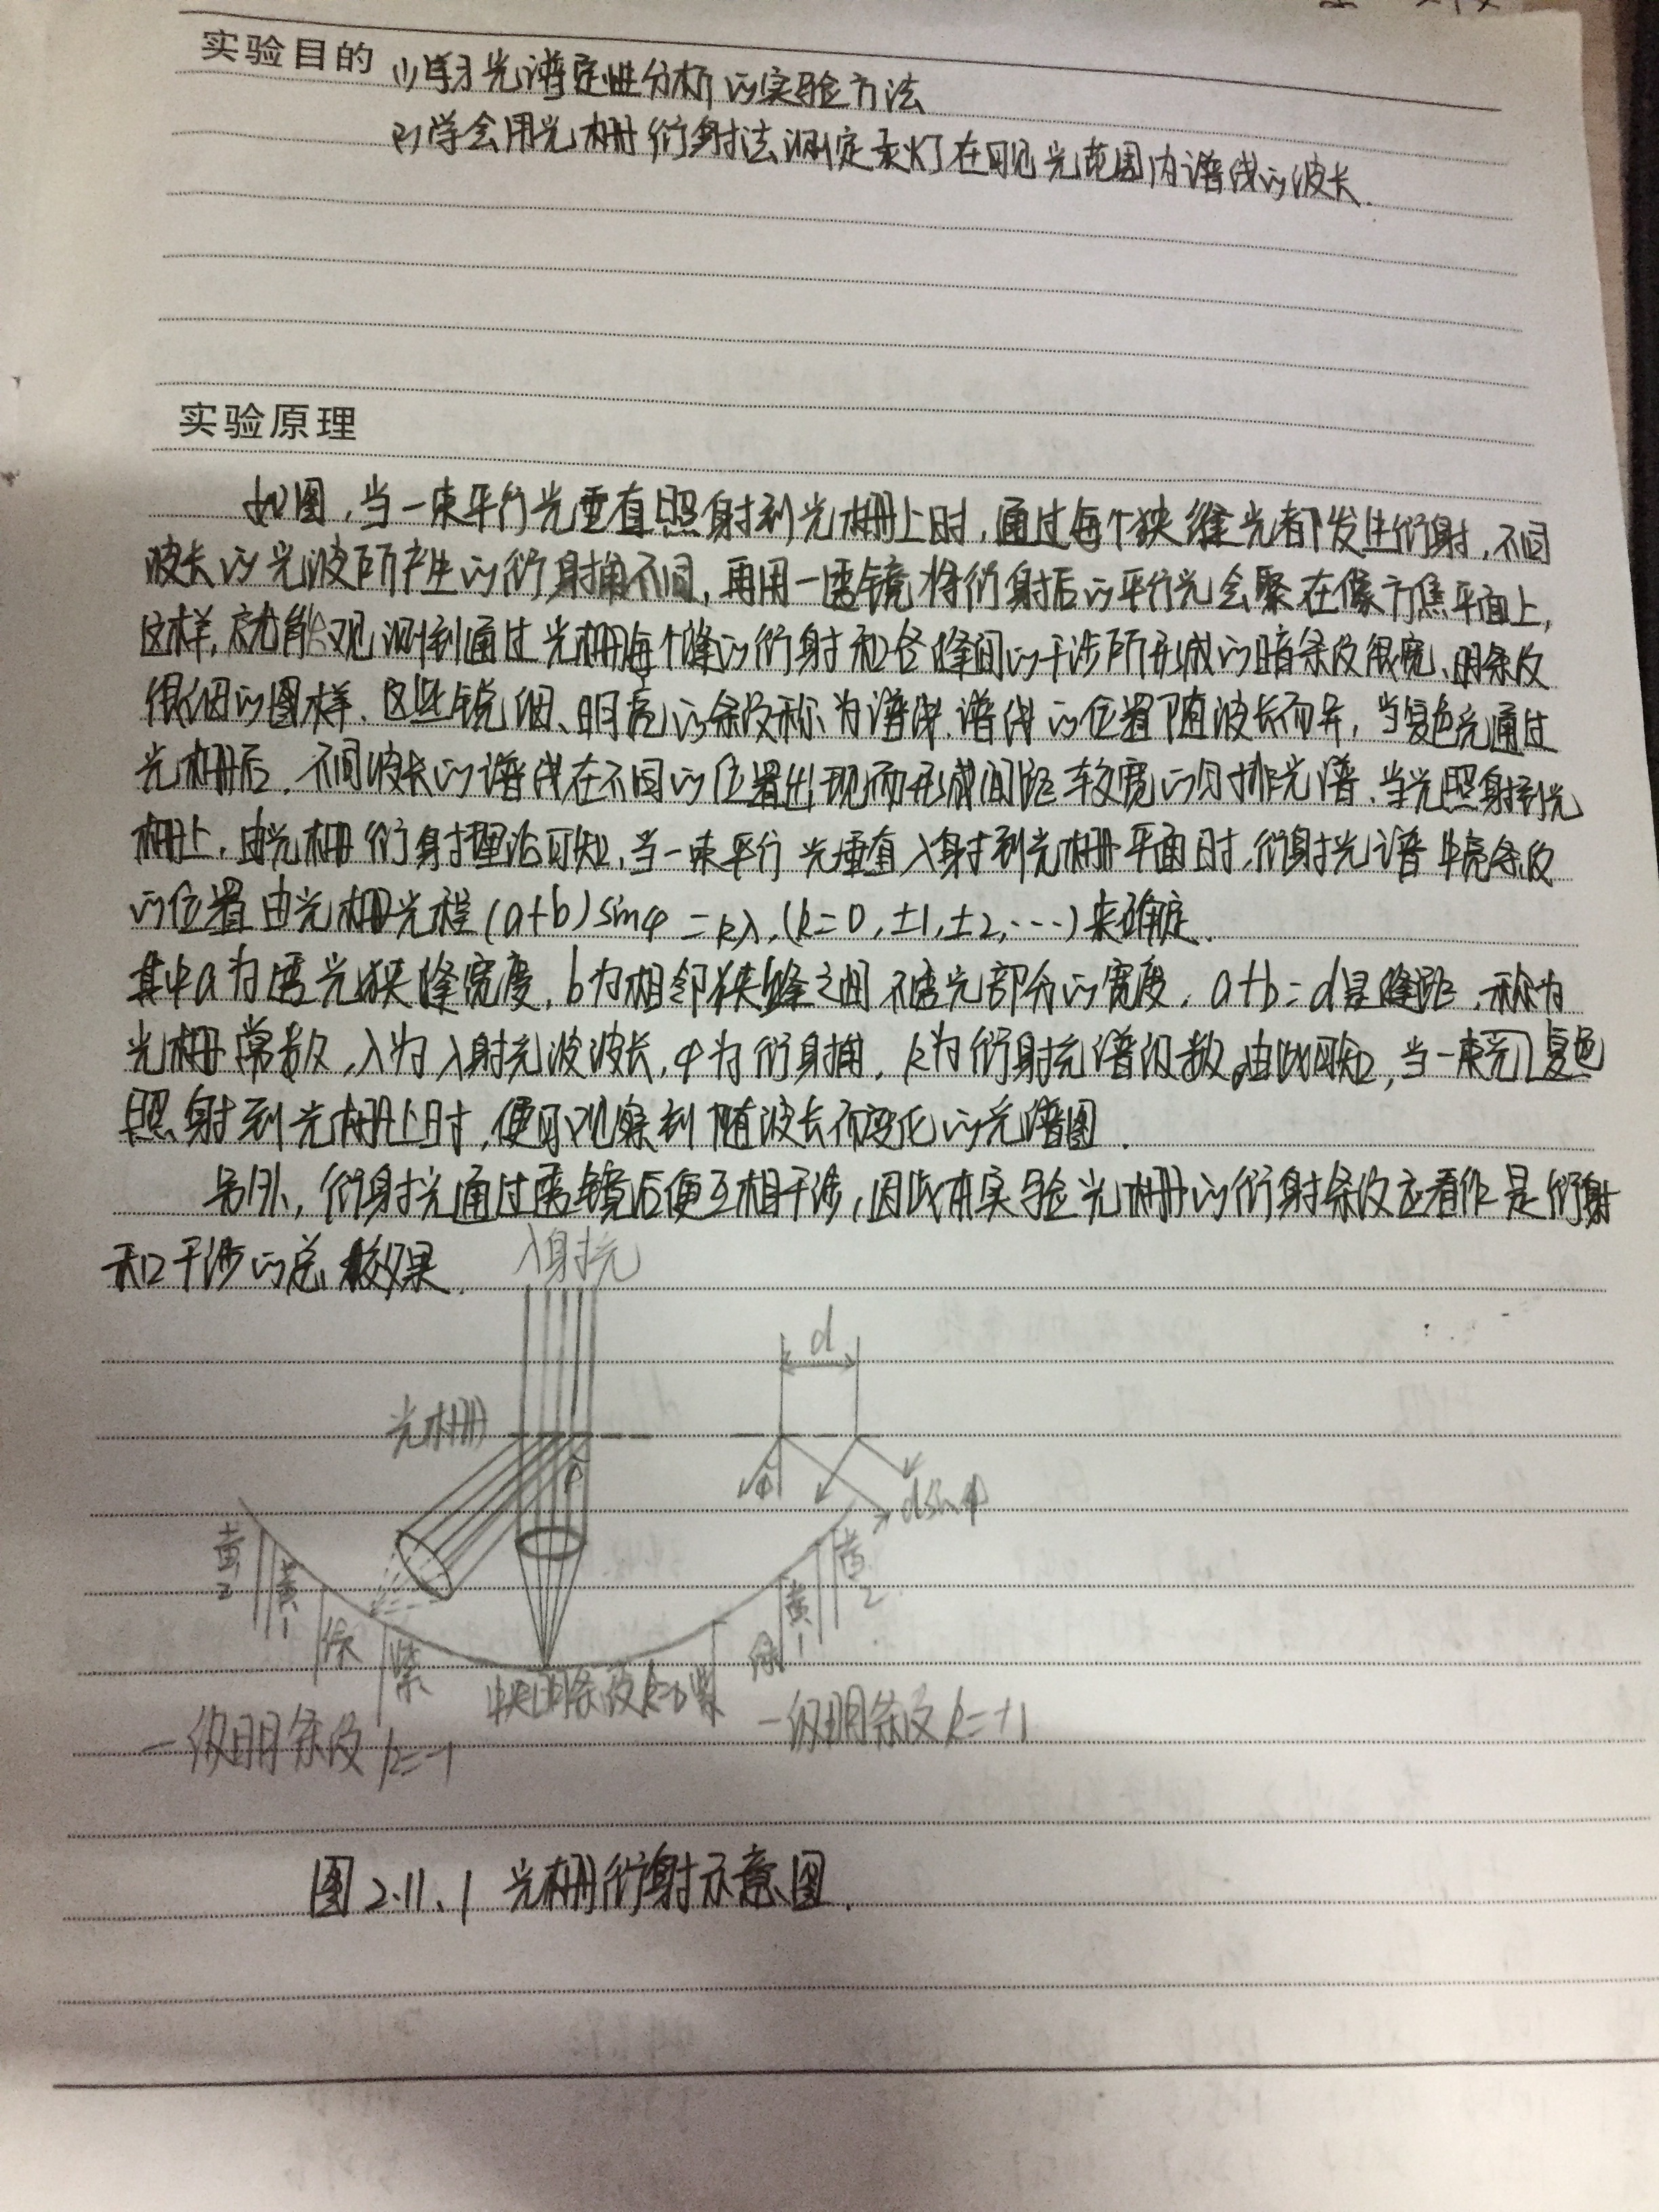 实验目的 (1)学习光谱定性分析的实验方法
(2)学会用光栅衍射法测定汞灯在可见光范围内谱线的波长.
实验原理
如图,当一束平行光垂直照射到光栅上时,通过每个狭缝光都发生衍射,不同
波长的光波所产生的衍射角不同,再用一透镜将衍射后的平行光会聚在像方焦平面上,
这样,就能观测到通过光栅每个缝的衍射和各缝间的干涉所形成的暗条纹很宽、明条纹
很细的图样、这些锐细、明亮的条纹称为谱线.谱线的位置随波长而异,当复色光通过
光栅后.不同波长的谱线在不同的位置出现而形成间距较宽的分排光谱、当光照射到光
栅上,由光栅衍射理论可知,当一束平行光垂直入射到光栅平面时,衍射光谱中亮条纹
的位置由光栅光程(a+b)sinφ=kλ,(k=0,±1,±2,…)来确定.
其中a为透光狭缝宽度,b为相邻狭缝之间不透光部分的宽度,a+b=d是缝距,称为
光栅常数,λ为入射光波波长,φ为衍射角,k为衍射光谱级数,由此可知,当一束光复色
照射到光栅上时,便可观察到随波长而变化的光谱图.
另外,衍射光通过透镜后便互相干涉,因此本实验光栅的衍射条纹应看作是衍射
和干涉的总效果.
入射光
d
光栅
φ
φ
dsinφ
黄2
黄1
绿
紫
中央明条纹k=0
紫
绿
黄1
黄2
一级明条纹k=-1
一级明条纹k=+1
图2.11.1 光栅衍射示意图.